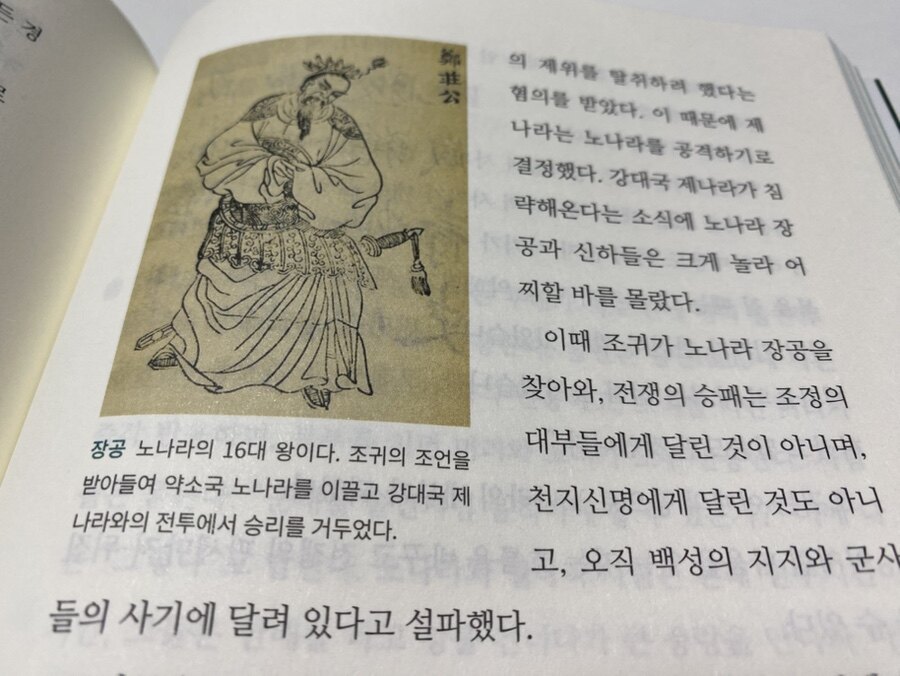 든 경
鄭莊公
의 제위를 탈취하려 했다는
혐의를 받았다. 이 때문에 제
나라는 노나라를 공격하기로
결정했다. 강대국 제나라가 침
략해온다는 소식에 노나라 장
공과 신하들은 크게 놀라 어
찌할 바를 몰랐다.
이때 조귀가 노나라 장공을
찾아와, 전쟁의 승패는 조정의
대부들에게 달린 것이 아니며,
천지신명에게 달린 것도 아니
고, 오직 백성의 지지와 군사
들의 사기에 달려 있다고 설파했다.
장공 노나라의 16대 왕이다. 조귀의 조언을
받아들여 약소국 노나라를 이끌고 강대국 제
나라와의 전투에서 승리를 거두었다.